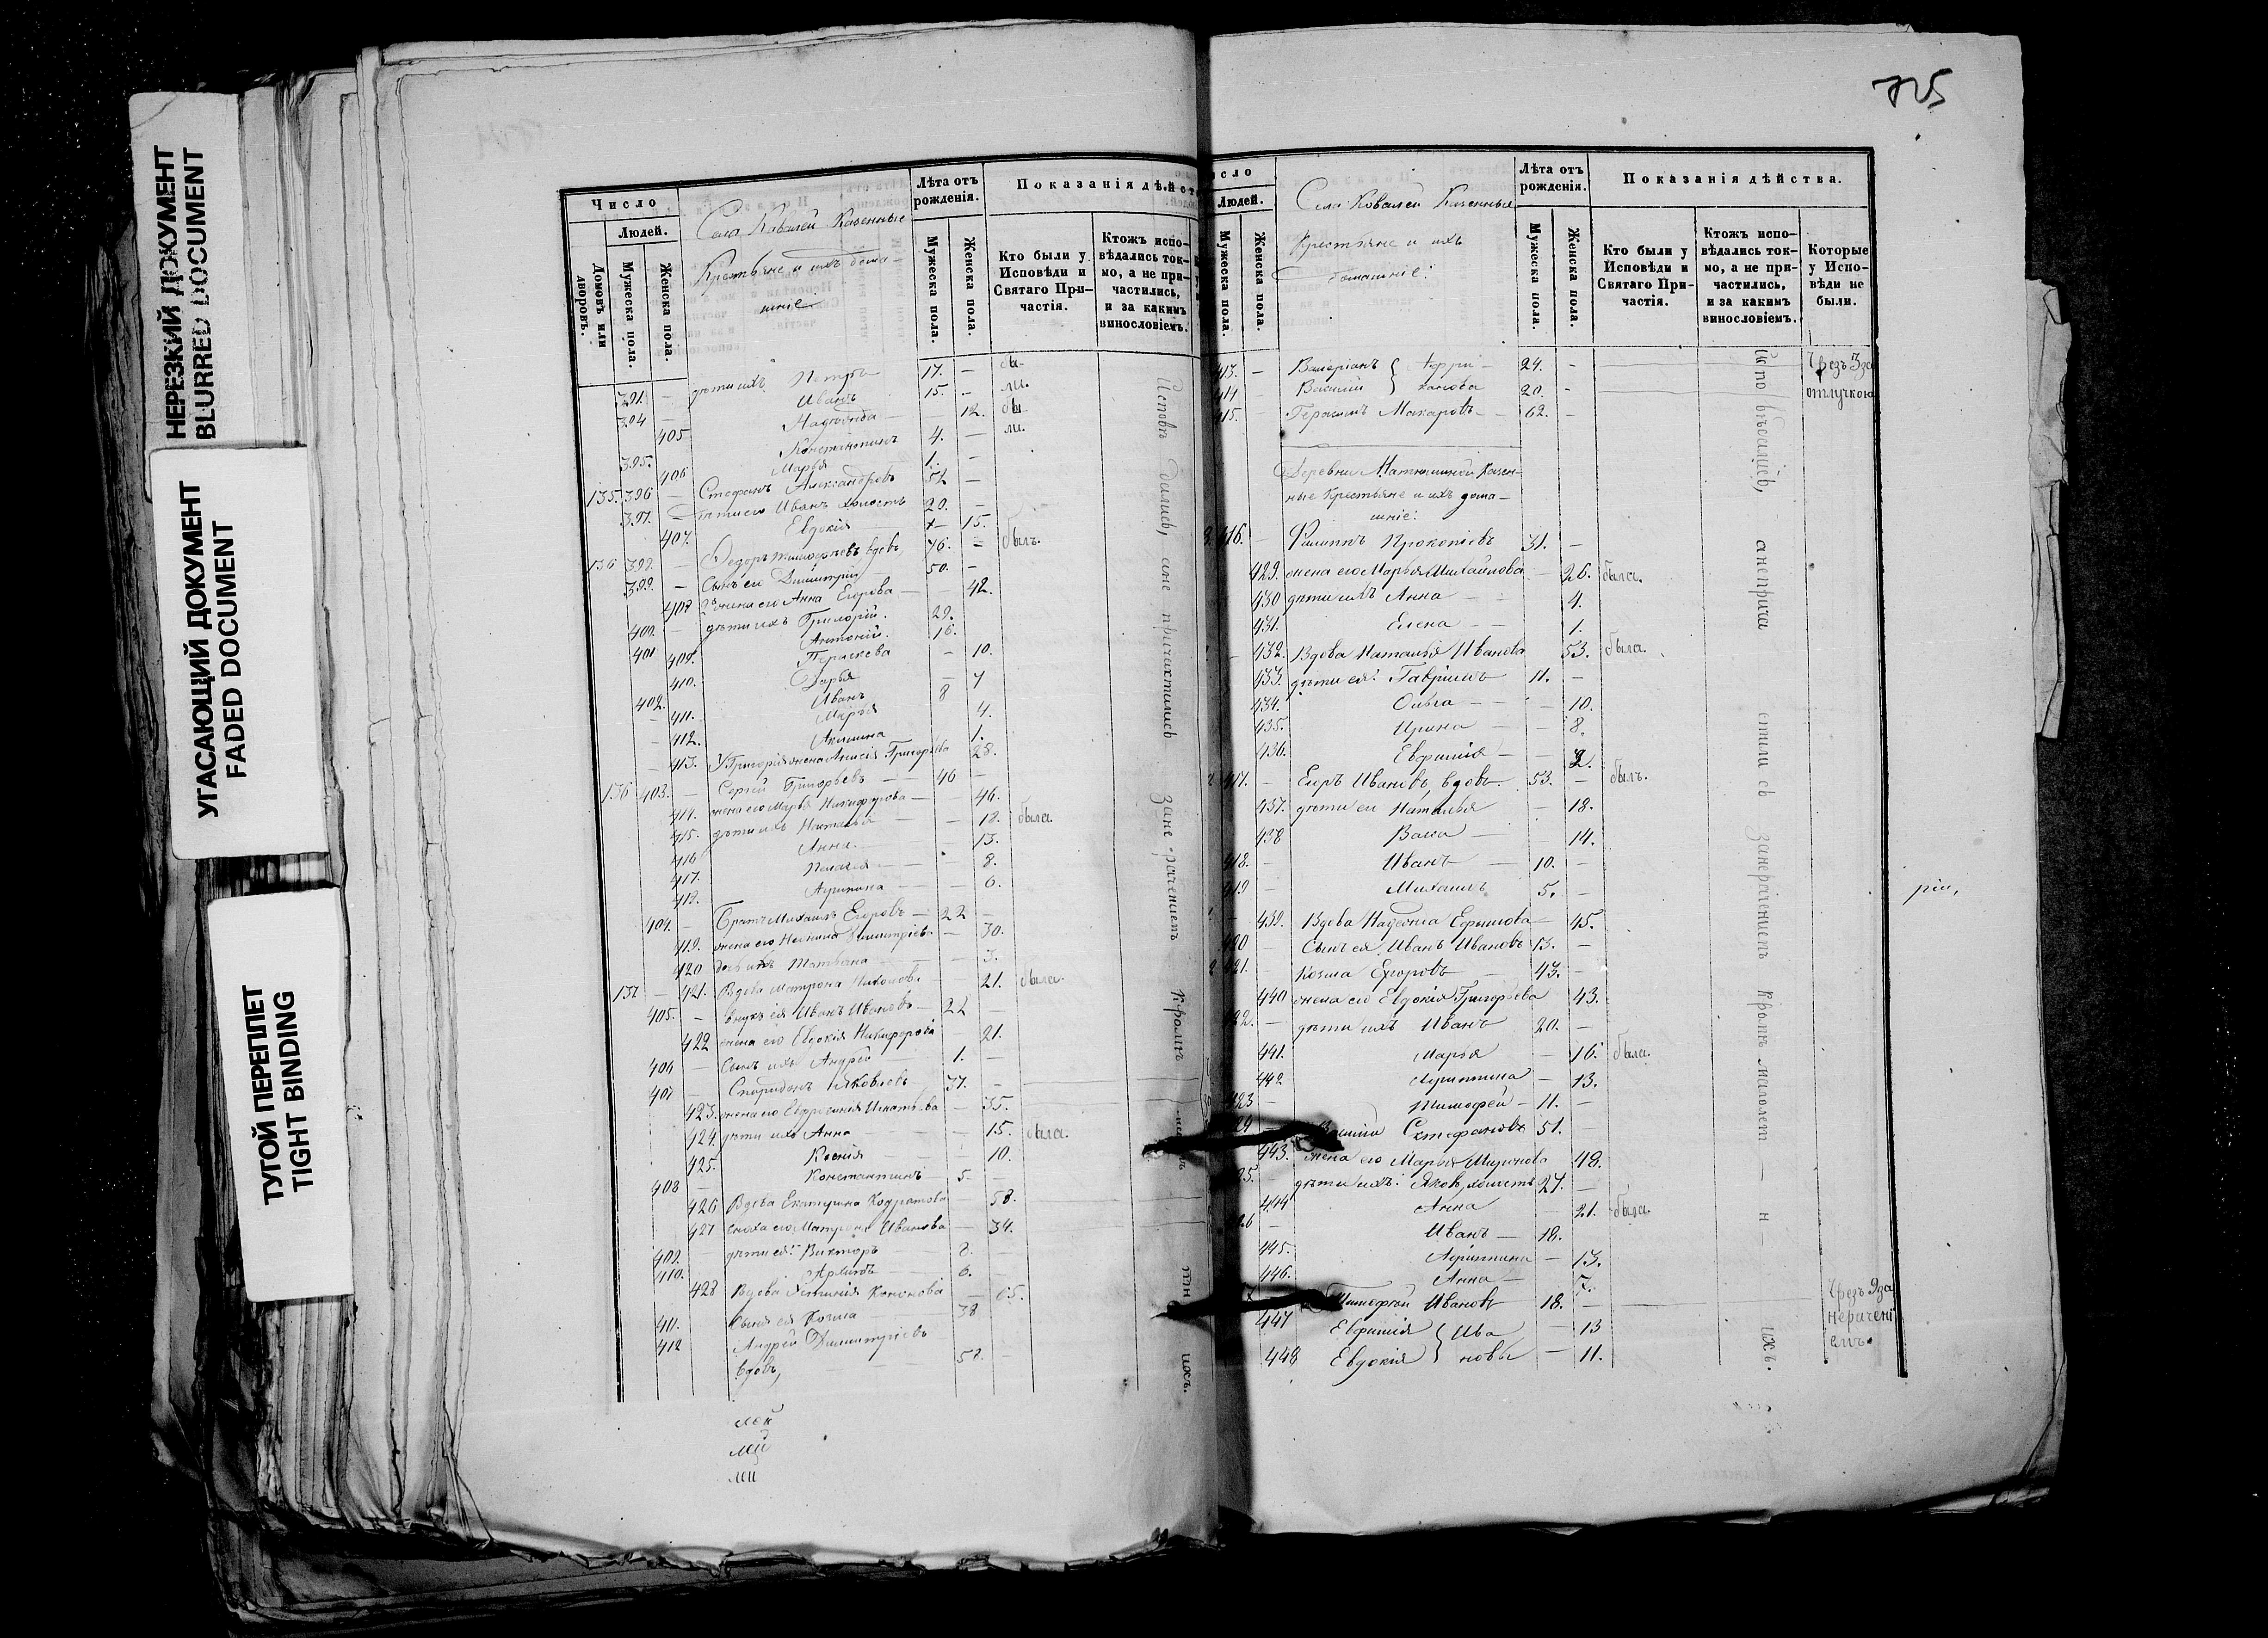 НЕРЕЗКИЙ ДОКУМЕНТ
BLURRED DOCUMENT
УГАСАЮЩИЙ ДОКУМЕНТ
FADED DOCUMENT
ТУГОЙ ПЕРЕПЛЕТ
TIGHT BINDING
Число
Людей.
Домовъ или дворовъ.
Мужеска пола.
Женска пола.
Села Ковалей Казенные
Крестьяне и ихъ дома-
шніе
Лѣта отъ рожденія.
Мужеска пола.
Женска пола.
Показанія дѣйст
Кто были у Исповѣди и Святаго При-частія.
Ктожъ испо-вѣдались ток-мо, а не при-частились, и за какимъ винословіемъ.
391. — дѣти ихъ Петръ 17. — бы-
394 — Иванъ 15. — ли.
405 Надежда — 12. бы-
395. Константинъ 4. — ли.
406 Марья 1. —
135. 396 — Стефанъ Александровъ 52 —
397. — дѣти его Иванъ холостъ 20. —
407. Евдокія 15.
136 398. — Ѳедоръ Тимофеевъ вдовъ 76. — былъ.
399. — Сынъ его Димитрій 50. —
408 жена его Анна Егорова — 42.
400. — дѣти ихъ Григорій. 22.
401 Антоній. 16.
409. Параскева — 10.
410. Дарья — 7
402. Иванъ 8
411. Марья 4.
412. Акилина 1.
413. У Григорія жена Анисія Григорьева 28.
136 403. — Сергій Григорьевъ — 46 —
414. жена его Марья Никифорова — 46.
415. дѣти ихъ Наталья — 18. была.
416 Анна. — 13.
417. Пелагея — 8.
418. Агрипина — 6.
404. — Братъ Михаилъ Егоровъ — 22 —
419. жена его Димитріева — 30.
420 дочь ихъ Татьяна — 3.
137 — 421. Вдова Матрона — 21. была.
405. — внукъ ея Иванъ Ивановъ — 22 —
422 жена его Евдокія Никифорова — 21.
406 — Сынъ ихъ Андрей 1. —
407 — Спиридонъ Яковлевъ 37. —
423. жена его Евфросинія Игнатьева — 35.
424. дѣти ихъ Анна — 15. была.
425. Ксенія — 10.
408 — Константинъ 5. —
426 Вдова Екатерина Кондратова — 58.
427 сноха его Матрона Иванова — 34.
409. — дѣти ея: Викторъ 8. —
410. 6. —
428 Вдова Устинія Кононова — 65.
411. Сынъ ея Козма 38 —
412 Андрей Димитріевъ
вдовъ, 52. —
Исповѣ дались, ане причастились зане-раченіемъ Кромѣ ихъ.
лей
лей
725
сло
Людей.
Мужеска пола.
Женска пола.
Села Ковалей Казенные
Крестьяне и ихъ
домашніе:
Лѣта отъ рожденія.
Мужеска пола.
Женска пола.
Показанія дѣйства.
Кто были у Исповѣди и Святаго При-частія.
Ктожъ испо-вѣдались ток-мо, а не при-частились, и за какимъ винословіемъ.
Которые у Испо-вѣди не были.
413. — Валеріанъ 24. — Чрезъ
414 — Василій 20. — отлучкою
415. — Герасимъ Макаровъ — 62. —
Деревни Матюшиной Казен-
ные Крестьяне и ихъ дома-
шніе:
416. — Филиппъ Прокопіевъ 31. —
429. жена его Марья Михайлова — 26. была.
430 дѣти ихъ Анна — 4.
431. Елена — 1.
432. Вдова Наталья Иванова 53. была.
433. дѣти ея: Гавріилъ 11. —
434. Ольга — 10.
435. Ирина — 8.
436. Евфимія — 2.
417. — Егоръ Ивановъ, вдовъ 53. — былъ.
437. дѣти его Наталья — 18.
438 Васса — 14.
418. — Иванъ — 10. —
419 — Михаилъ 5. —
439. Вдова Надежда Ефимова — 45.
420 — Сынъ ея Иванъ Ивановъ 13. —
421. — Козма Егоровъ — 43. —
440 жена его Евдокія Григорьева 43.
422. — дѣти ихъ Иванъ 20. —
441. Марья — 16. была.
442 Агрипина — 13.
423 — Тимофей — 11. —
Стефановъ 51. —
443. жена его Марья Миронова 48.
25. — дѣти ихъ: Яковъ, холостъ 27. —
444 Анна — 21. была.
26 — Иванъ — 18.
445. Агрипина — 13.
446. Анна — 7.
Тимофей Ивановъ 18. — Чрезъ
447 Евфимія } Ива — 13 нерачені
448 Евдокія } новы — 11. емъ.
анеприча стились занераченіемъ Кромѣ малолѣт — н — ихъ.